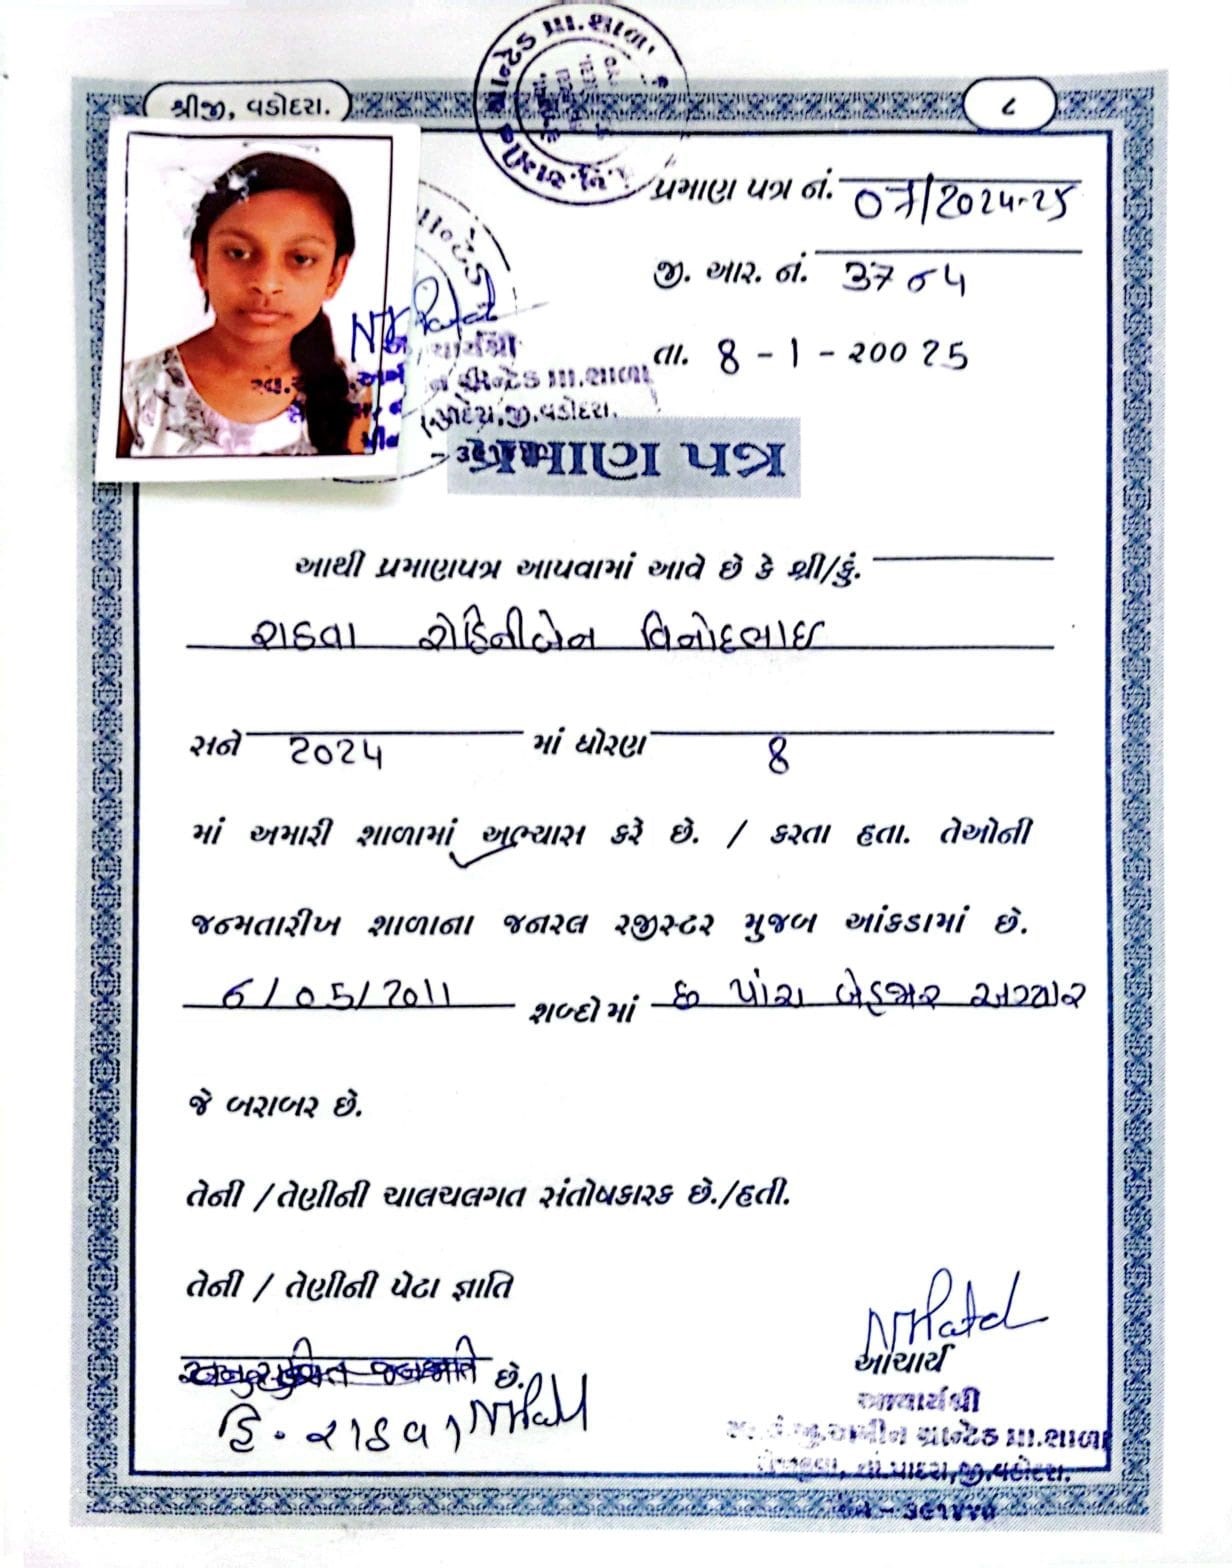 શ્રીજી, વડોદરા.
૮
ગ્રાન્ટેડ પ્રા.શાળા
પ્રમાણ પત્ર નં. 07/2024-25
જી. આર. નં. 3704
તા. 8-1-૨૦૦25
NHPatel
આચાર્યશ્રી
ગ્રાન્ટેડ પ્રા.શાળા
જી.વડોદરા.
પ્રમાણ પત્ર
આથી પ્રમાણપત્ર આપવામાં આવે છે કે શ્રી/કું.
રાઠવા રોહિનીબેન વિનોદભાઇ
સને 2024 માં ધોરણ 8
માં અમારી શાળામાં અભ્યાસ કરે છે. / કરતા હતા. તેઓની
જન્મતારીખ શાળાના જનરલ રજીસ્ટર મુજબ આંકડામાં છે.
6/05/2011 શબ્દોમાં છ પાંચ બેહજાર અગ્યાર
જે બરાબર છે.
તેની /તેણીની ચાલચલગત સંતોષકારક છે./હતી.
તેની / તેણીની પેટા જ્ઞાતિ
છે.
હિ. રાઠવા NHPatel
NHPatel
આચાર્ય
આચાર્યશ્રી
અમીન ગ્રાન્ટેડ પ્રા.શાળા
તા.પાદરા,જી.વડોદરા.
પીન - ૩૯૧૪૪૦